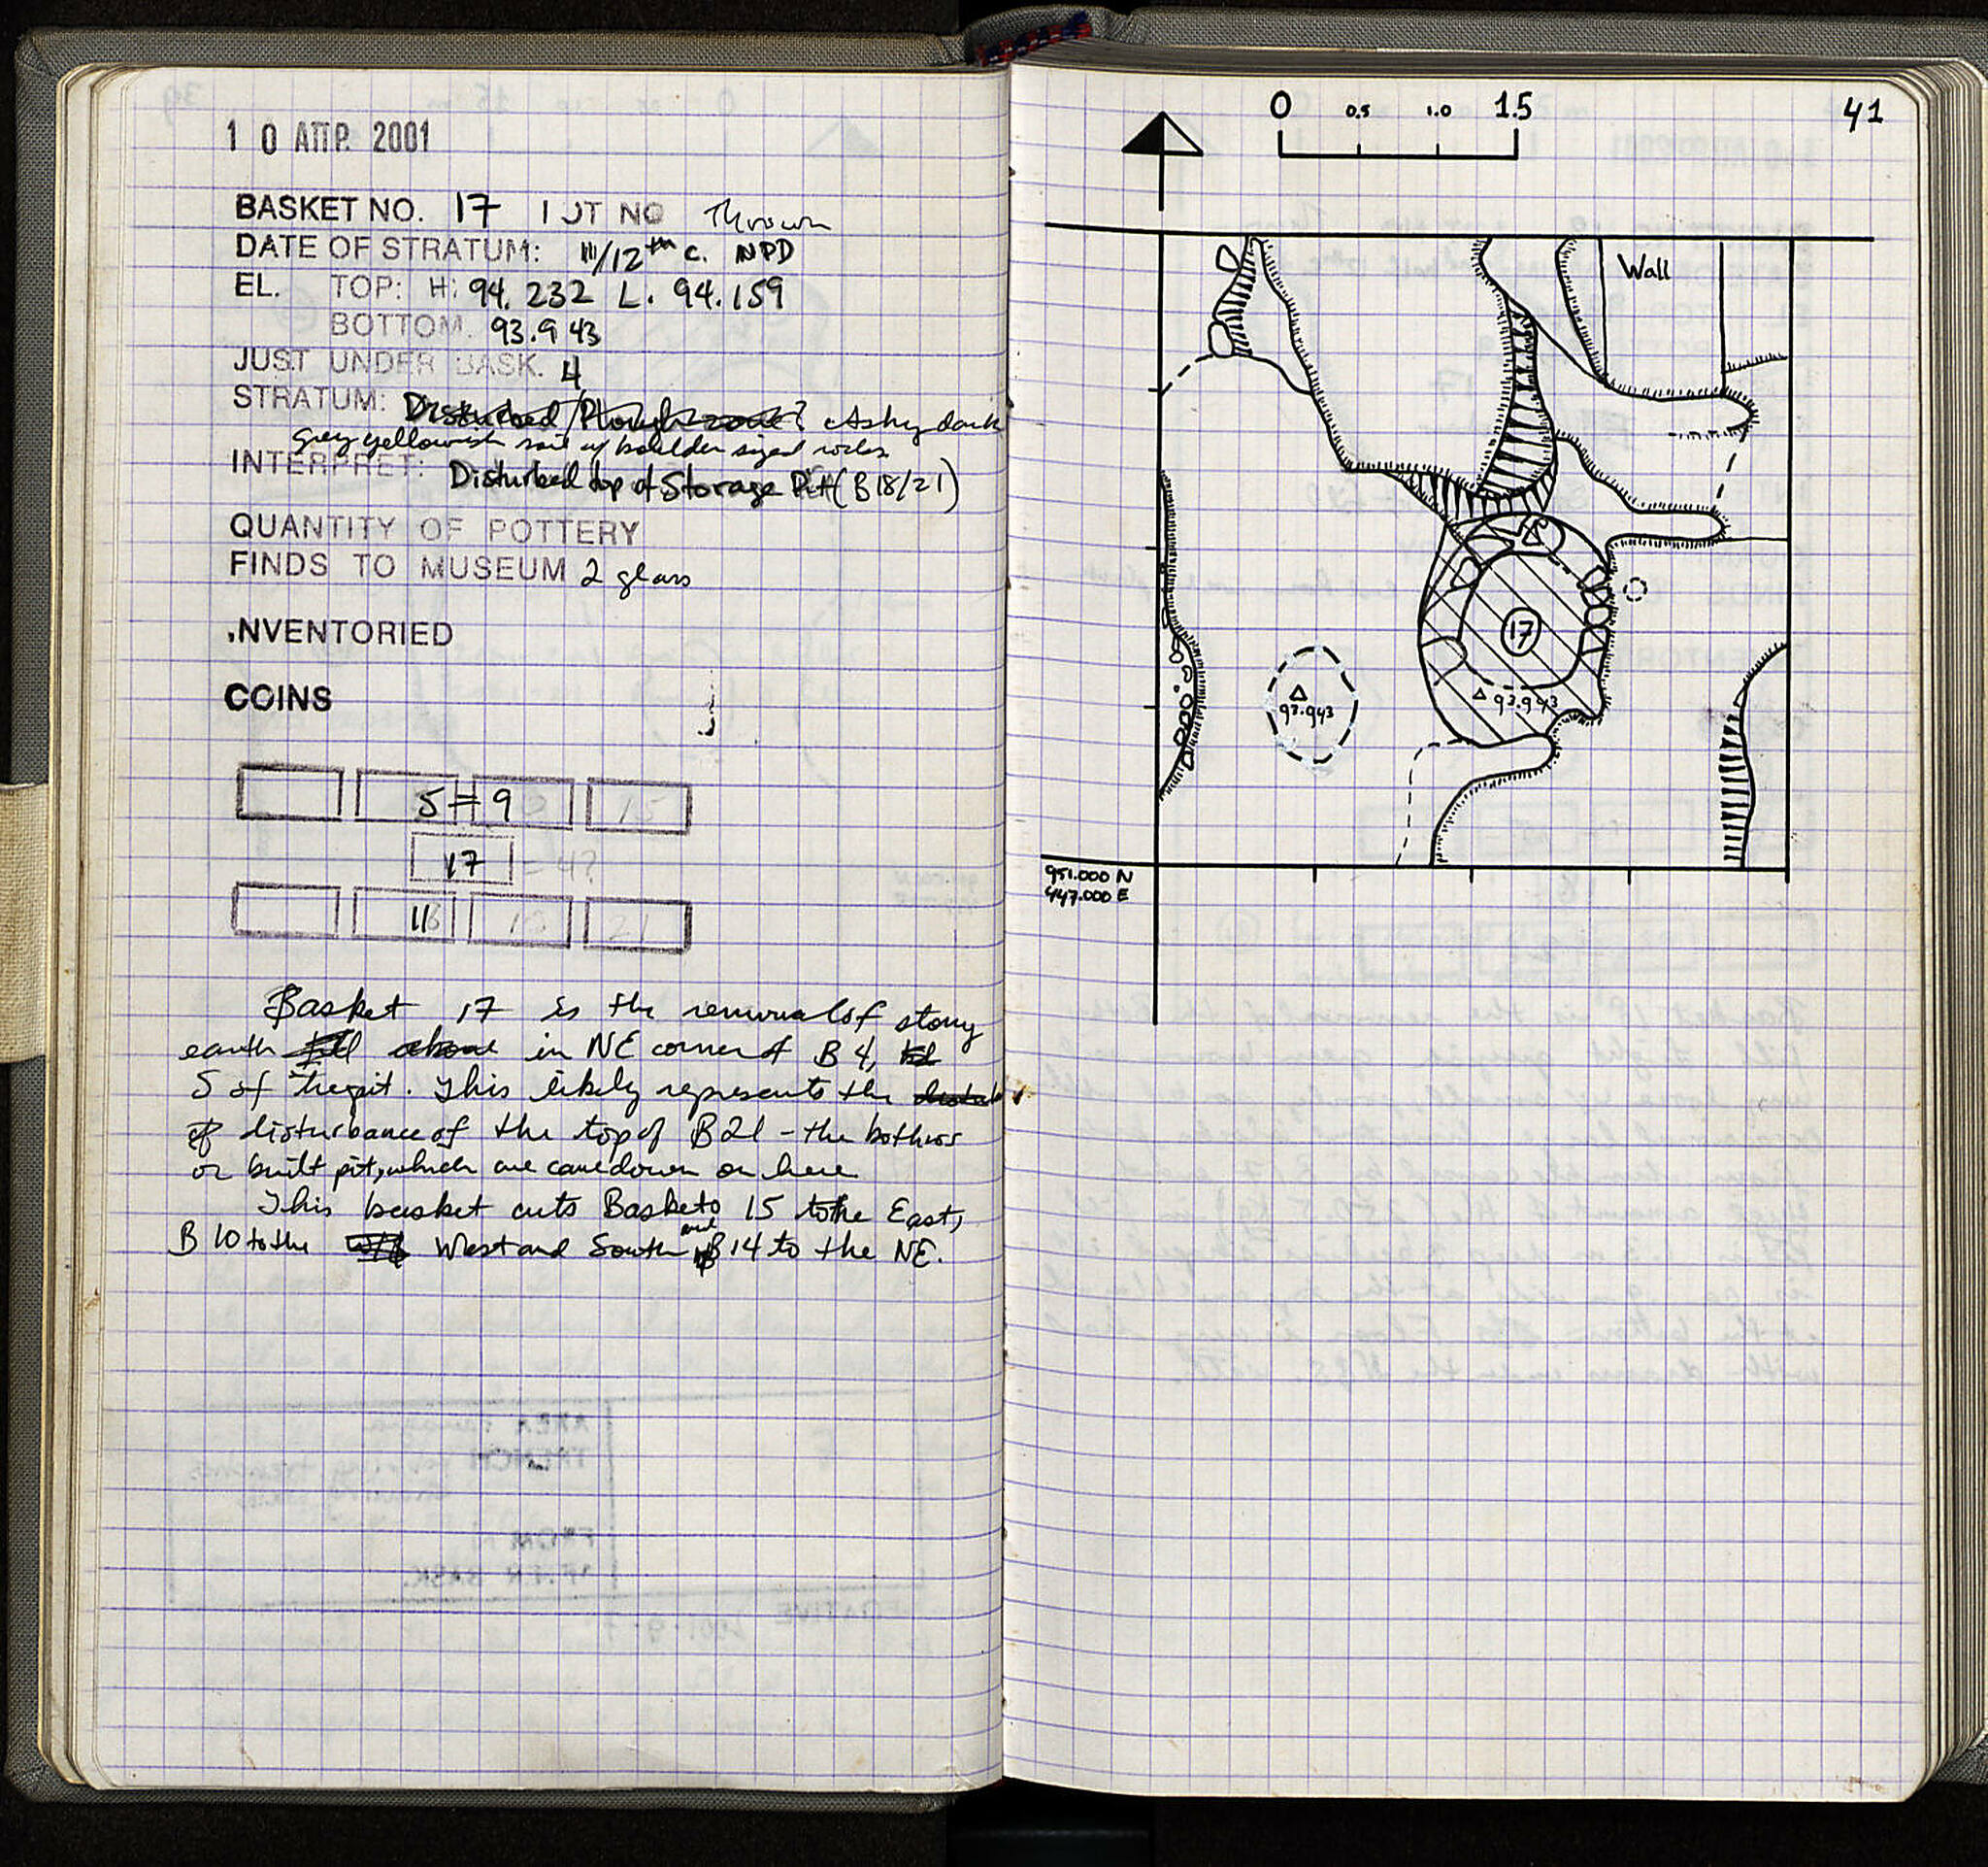 1 0 ΑΠΡ. 2001
BASKET NO. 17 LOT NO Thrown
DATE OF STRATUM: 11/12th c. NPD
EL. TOP: H: 94.232 L. 94.159
BOTTOM. 93.943
JUST UNDER BASK. 4
STRATUM: Disturbed/Plough zone? Ashy dark
grey yellowish soil w/ boulder sized rocks
INTERPRET: Disturbed top of Storage Pit (B18/21)
QUANTITY OF POTTERY
FINDS TO MUSEUM 2 glass
INVENTORIED
COINS
5 = 9 15
17 = 4?
18 21
Basket 17 is the removal of stony
earth fill above in NE corner of B 4,
S of the pit. This likely represents the
of disturbance of the top of B21 - the bothros
or built pit, which we came down on here.
This basket cuts Baskets 15 to the East,
B 10 to the West and South and B 14 to the NE.
41
0 0.5 1.0 1.5
Wall
17
93.943
93.943
951.000 N
447.000 E